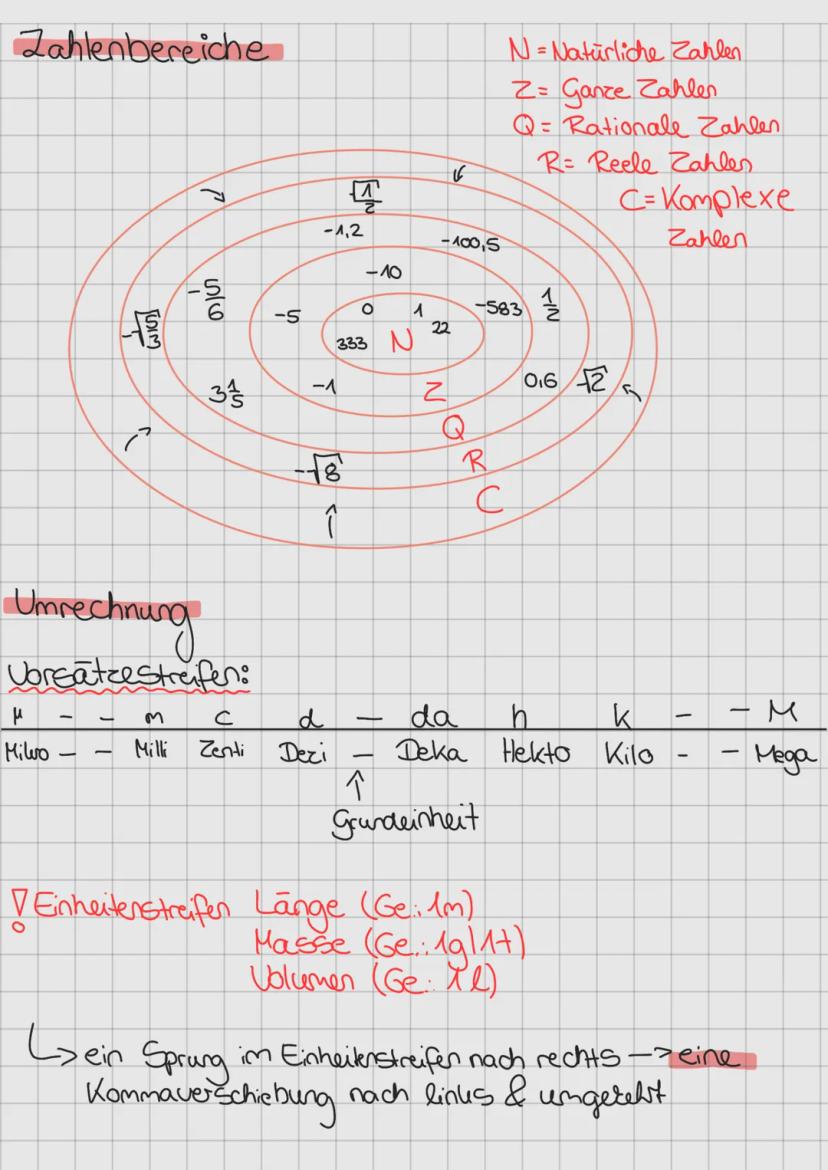 Zahlenbereiche
N = Natürliche Zahlen
Z = Ganze Zahlen
Q = Rationale Zahlen
R = Reele Zahlen
C = Komplexe
Zahlen
√1/2
-1,2
-100,5
-10
-5/6
-5
0
1
-583
1/2
22
333
N
-√5/3
-1
Z
0,6
√2
3 1/5
Q
R
-√8
C
Umrechnung
Vorsätzestreifen:
µ - - m c d - da h k - - M
Mikro - - Milli Zenti Dezi - Deka Hekto Kilo - - Mega
↑
Grundeinheit
! Einheitenstreifen Länge (Ge.: 1m)
Masse (Ge.: 1g|1t)
Volumen (Ge.: 1l)
↳ ein Sprung im Einheitenstreifen nach rechts → eine
Kommaverschiebung nach links & umgekehrt